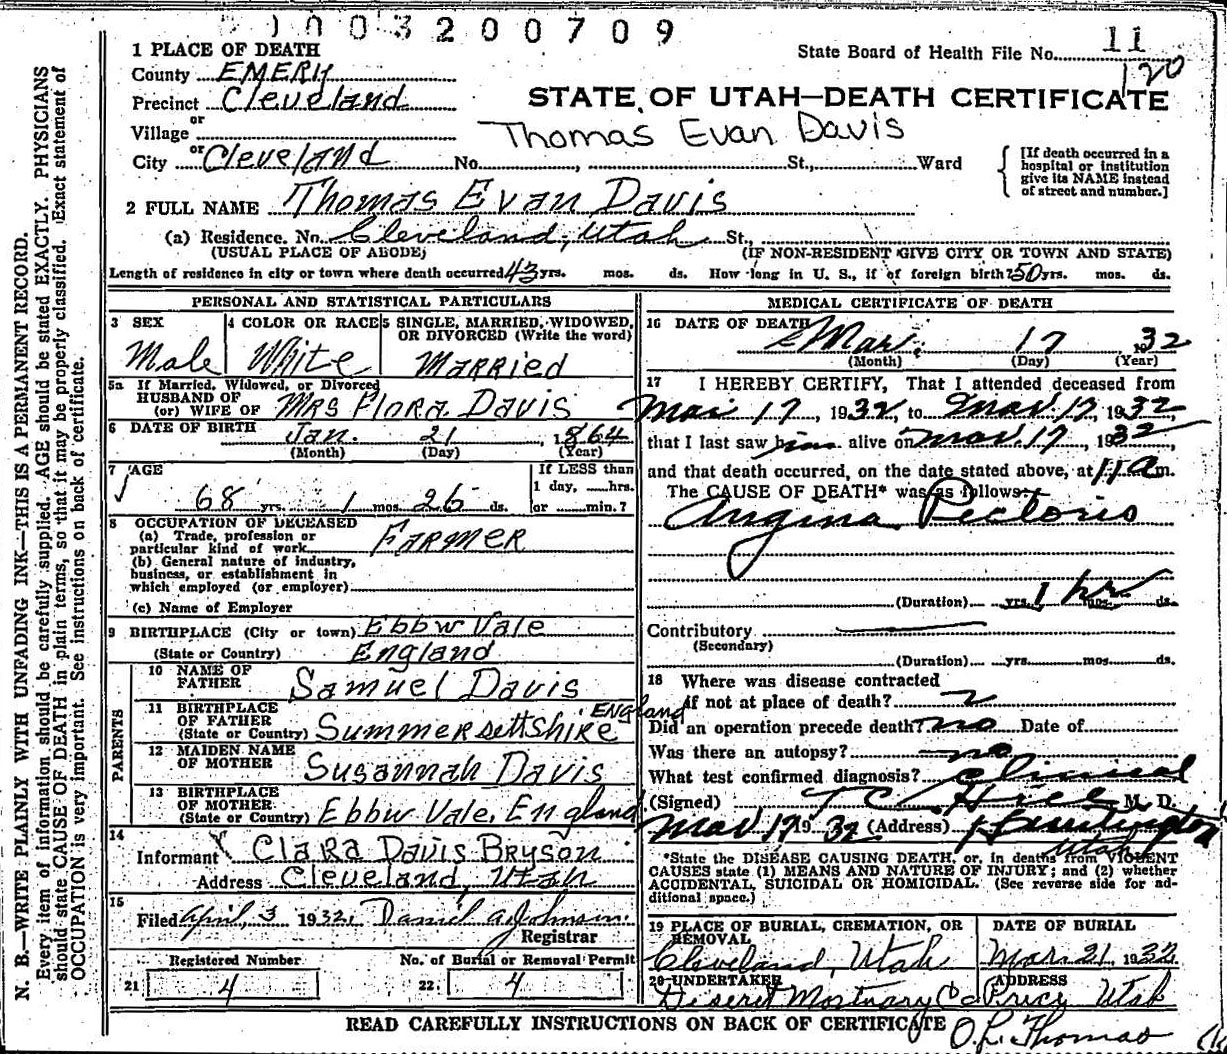 0003200709
State Board of Health File No. 11
120
1 PLACE OF DEATH
County EMERY
Precinct Cleveland
or
Village
or
City Cleveland No. St., Ward
STATE OF UTAH—DEATH CERTIFICATE
Thomas Evan Davis
[If death occurred in a hospital or institution give its NAME instead of street and number.]
2 FULL NAME Thomas Evan Davis
(a) Residence. No. Cleveland, Utah St.,
(USUAL PLACE OF ABODE) (IF NON-RESIDENT GIVE CITY OR TOWN AND STATE)
Length of residence in city or town where death occurred 43 yrs. mos. ds. How long in U. S., if of foreign birth? 50 yrs. mos. ds.
PERSONAL AND STATISTICAL PARTICULARS
3 SEX
Male
4 COLOR OR RACE
White
5 SINGLE, MARRIED, WIDOWED,
OR DIVORCED (Write the word)
MARRIED
5a If Married, Widowed, or Divorced
HUSBAND OF
(or) WIFE OF Mrs Flora Davis
6 DATE OF BIRTH Jan. 21, 1864
(Month) (Day) (Year)
7 AGE
68 yrs. 1 mos. 26 ds.
If LESS than
1 day, hrs.
or min.?
8 OCCUPATION OF DECEASED
(a) Trade, profession or
particular kind of work FARMER
(b) General nature of industry,
business, or establishment in
which employed (or employer)
(c) Name of Employer
9 BIRTHPLACE (City or town) Ebbw Vale
(State or Country) England
PARENTS
10 NAME OF
FATHER Samuel Davis
11 BIRTHPLACE
OF FATHER
(State or Country) Summersettshire England
12 MAIDEN NAME
OF MOTHER Susannah Davis
13 BIRTHPLACE
OF MOTHER
(State or Country) Ebbw Vale, England
14
Informant Clara Davis Bryson
Address Cleveland, Utah
15
Filed April 3 1932. Daniel A. Johnson.
Registrar
Registered Number No. of Burial or Removal Permit
21 4 22 4
MEDICAL CERTIFICATE OF DEATH
16 DATE OF DEATH
Mar. 17 1932
(Month) (Day) (Year)
17 I HEREBY CERTIFY, That I attended deceased from
Mar 17, 1932, to Mar 17, 1932,
that I last saw him alive on Mar. 17, 1932
and that death occurred, on the date stated above, at 11 a m.
The CAUSE OF DEATH* was as follows:
Angina Pectoris
(Duration) yrs. 1 hr mos. ds.
Contributory
(Secondary)
(Duration) yrs. mos. ds.
18 Where was disease contracted
if not at place of death?
Did an operation precede death? no Date of
Was there an autopsy? no
What test confirmed diagnosis? Clinical
(Signed) T C Hill M. D.
Mar 17 1932 (Address) Huntington
Utah
*State the DISEASE CAUSING DEATH, or, in deaths from VIOLENT
CAUSES state (1) MEANS AND NATURE OF INJURY; and (2) whether
ACCIDENTAL, SUICIDAL OR HOMICIDAL. (See reverse side for ad-
ditional space.)
19 PLACE OF BURIAL, CREMATION, OR
REMOVAL
Cleveland, Utah
DATE OF BURIAL
Mar. 21, 1932
20 UNDERTAKER
Deseret Mortuary Co
ADDRESS
Price Utah
READ CAREFULLY INSTRUCTIONS ON BACK OF CERTIFICATE
O. L. Thomas
N. B.—WRITE PLAINLY WITH UNFADING INK—THIS IS A PERMANENT RECORD.
Every item of information should be carefully supplied. AGE should be stated EXACTLY. PHYSICIANS
should state CAUSE OF DEATH in plain terms, so that it may be properly classified. Exact statement of
OCCUPATION is very important. See instructions on back of certificate.